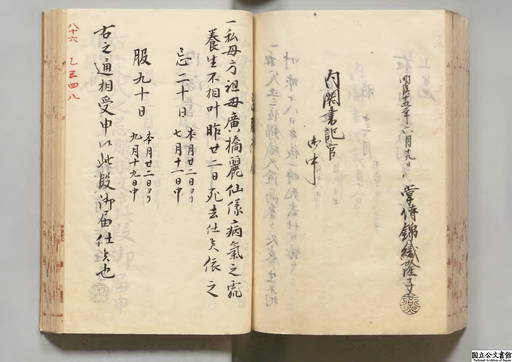 明治十五年六月
掌侍錦織隆子
内閣書記官
御中
一私母方祖母廣橋麗仙儀病氣之處
養生不相叶昨廿二日死去仕候依之
忌二十日
本月廿二日ヨリ
七月十一日中
服九十日
本月廿二日ヨリ
九月十九日中
右之通相受申候此段御届仕候也
八十六
乙三四八
国立公文書館
National Archives of Japan